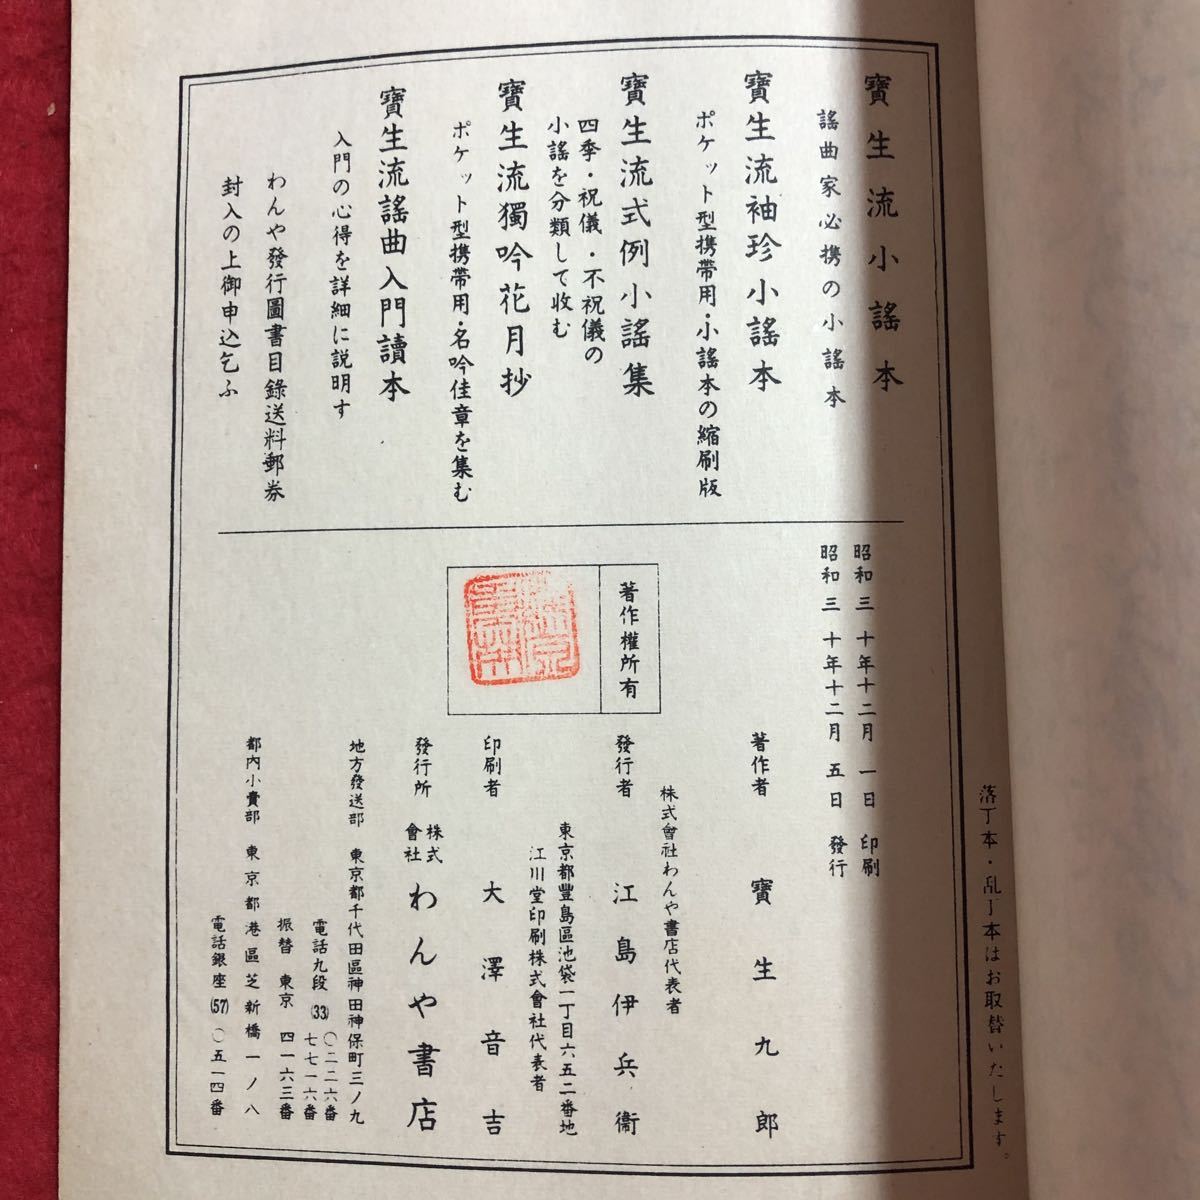 寶生流小謠本
謠曲家必携の小謠本
寶生流袖珍小謠本
ポケット型携帶用・小謠本の縮刷版
寶生流式例小謠集
四季・祝儀・不祝儀の
小謠を分類して收む
寶生流獨吟花月抄
ポケット型携帶用・名吟佳章を集む
寶生流謠曲入門讀本
入門の心得を詳細に説明す
わんや發行圖書目錄送料郵券
封入の上御申込乞ふ
昭和三十年十二月一日印刷
昭和三十年十二月五日發行
著作權所有
著作者 寶生九郎
株式會社わんや書店代表者
發行者 江島伊兵衞
東京都豐島區池袋一丁目六五二番地
江川堂印刷株式會社代表者
印刷者 大澤音吉
發行所 株式會社 わんや書店
地方發送部 東京都千代田區神田神保町三ノ九
電話九段(33)〇二二六番
七七一六番
振替 東京 四一六三番
都內小賣部 東京都港區芝新橋一ノ八
電話銀座(57)〇五一四番
落丁本・乱丁本はお取替いたします。